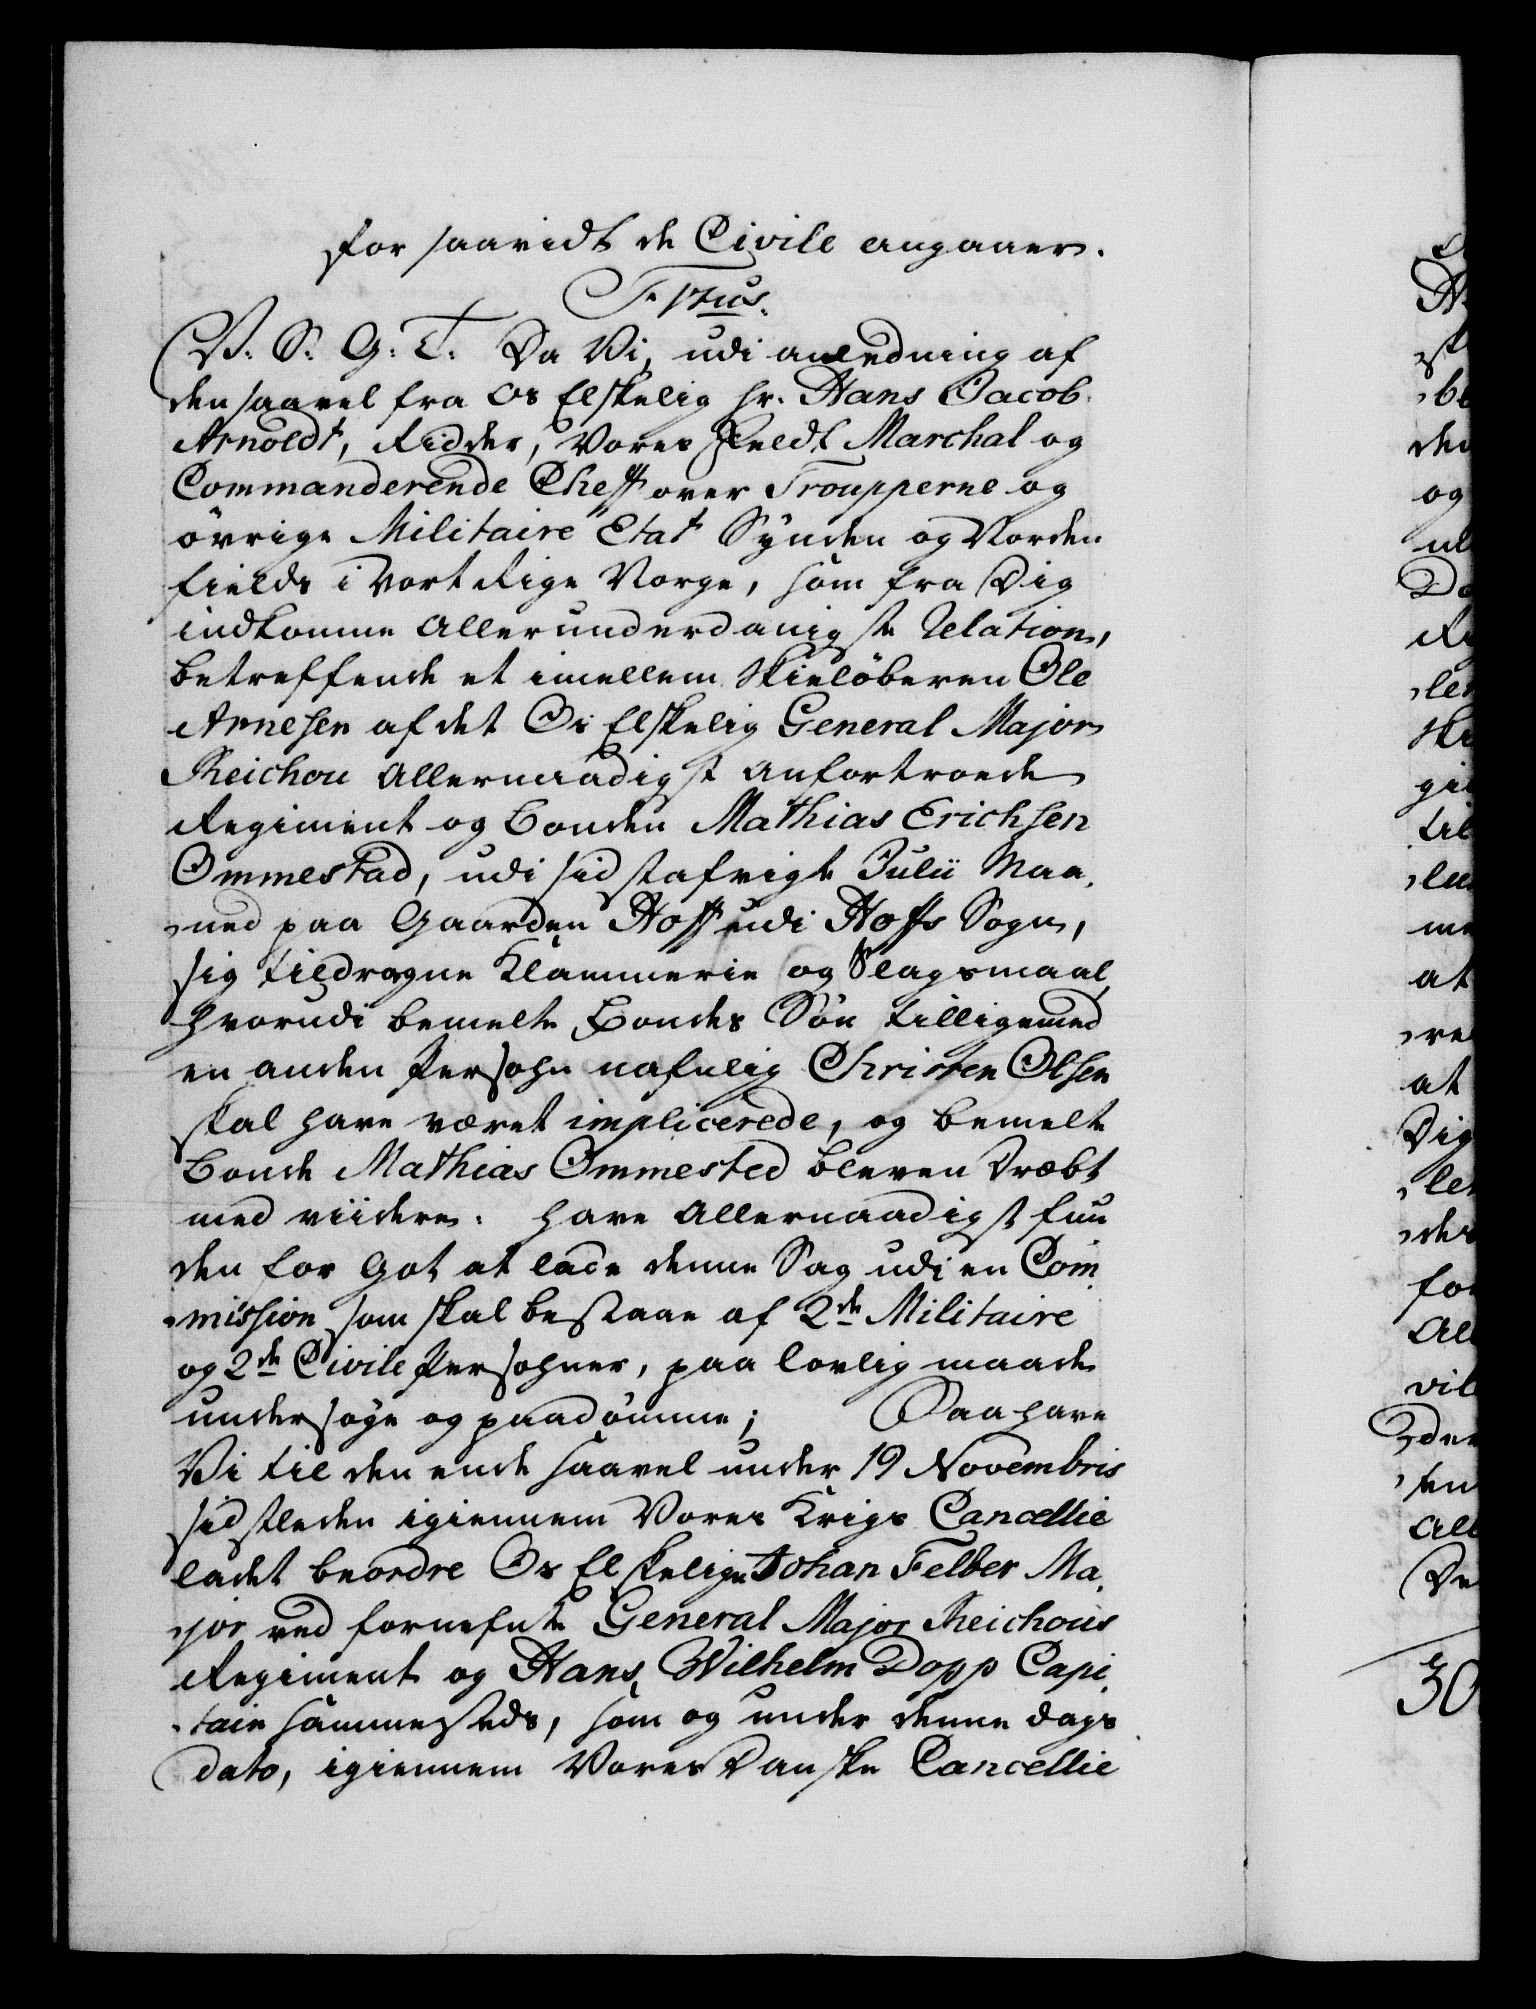 for saavidt de Civile angaaer.
V. S. G. T. Da Vi, udi anledning af
den saavel fra Os Elskelig Hr. Hans Jacob
Arnoldt, Ridder, Vores Feldt Marchal og
Commanderende Cheff over Troupperne og
övrige Militaire Etat Synden og Norden
fields i Vort Rige Norge, som fra Dig
indkomne Allerunderdanigste Relation,
betreffende et imellem Skielöberen Ole
Arnesen af det Os Elskelig General Major
Reichou Allernaadigst anfortroede
Regiment og Bonden Mathias Erichsen
Ommestad, udi sidstafvigte Julii Maa,
ned paa Gaarden Hoff udi Hoffs Sogn,
sig tildragne Klammerie og Slagsmaal
hvorudi bemelte Bondes Sön tilligemed
en anden Persohn nafnlig Christen Olsen
skal have været implicerede, og bemelte
Bonde Mathias Ommested bleven dræbt
med viidere. have Allernaadigst fun
den for Got at lade denne Sag udi en Com
mission som skal bestaae af 2de Militaire
og 2de Civile Persohner, paa lovlig maade
undersöge og paadömme; Saa have
Vi til den ende saavel under 19 Novembris
sidstleden igiennem Vores Krigs Cancellie
ladet beordre Os Elskelige Johan Felber Ma,
jor ved fornefnte General Major Reichous
Regiment og Hans Wilhelm Dopp Capi,
tain sammesteds, som og under denne Dags
dato, igiennem Vores Danske Cancellie